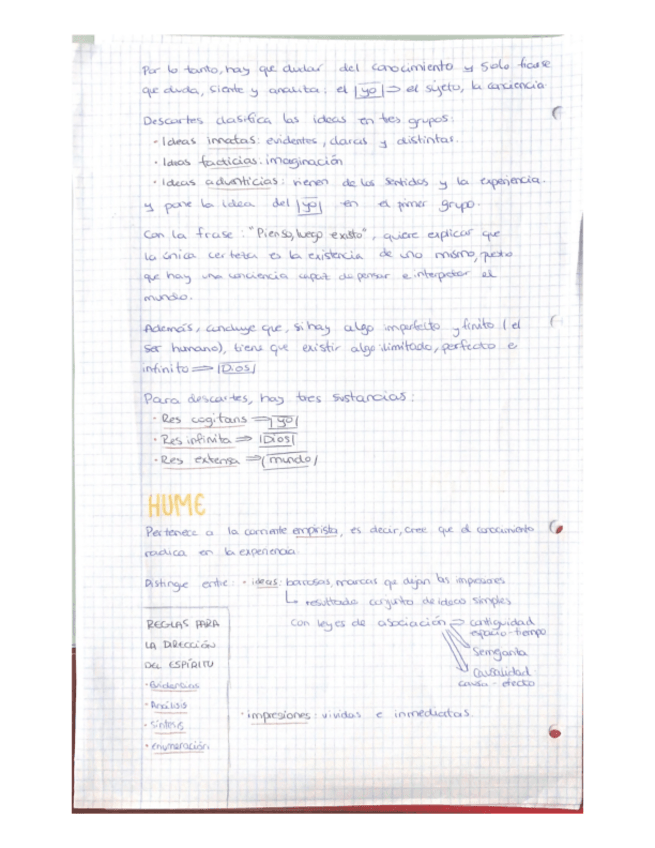 Por lo tanto, hay que dudar del conocimiento y solo fiarse
que duda, siente y analiza: el yo ⇒ el sujeto, la conciencia.
Descartes clasifica las ideas en tres grupos:
· Ideas innatas: evidentes, claras y distintas.
· Ideas facticias: imaginación
· Ideas adventicias: vienen de los sentidos y la experiencia.
y pone la idea del yo en el primer grupo.
Con la frase: "Pienso, luego existo", quiere explicar que
la única certeza es la existencia de uno mismo, puesto
que hay una conciencia capaz de pensar e interpretar el
mundo.
Además, concluye que, si hay algo imperfecto y finito (el
ser humano), tiene que existir algo ilimitado, perfecto e
infinito ⇒ Dios
Para descartes, hay tres sustancias:
· Res cogitans ⇒ yo
· Res infinita ⇒ Dios
· Res extensa ⇒ mundo
HUME
Pertenece a la corriente empirista, es decir, cree que el conocimiento
radica en la experiencia
Distingue entre: · ideas: borrosas, marcas que dejan las impresiones
↳ resultado conjunto de ideas simples
con leyes de asociación ⇒ contiguidad
espacio-tiempo
Semejanza
Causalidad
causa-efecto
· impresiones: vividas e inmediatas.
REGLAS PARA
LA DIRECCIÓN
DEL ESPÍRITU
· Evidencias
· Análisis
· Síntesis
· enumeración.